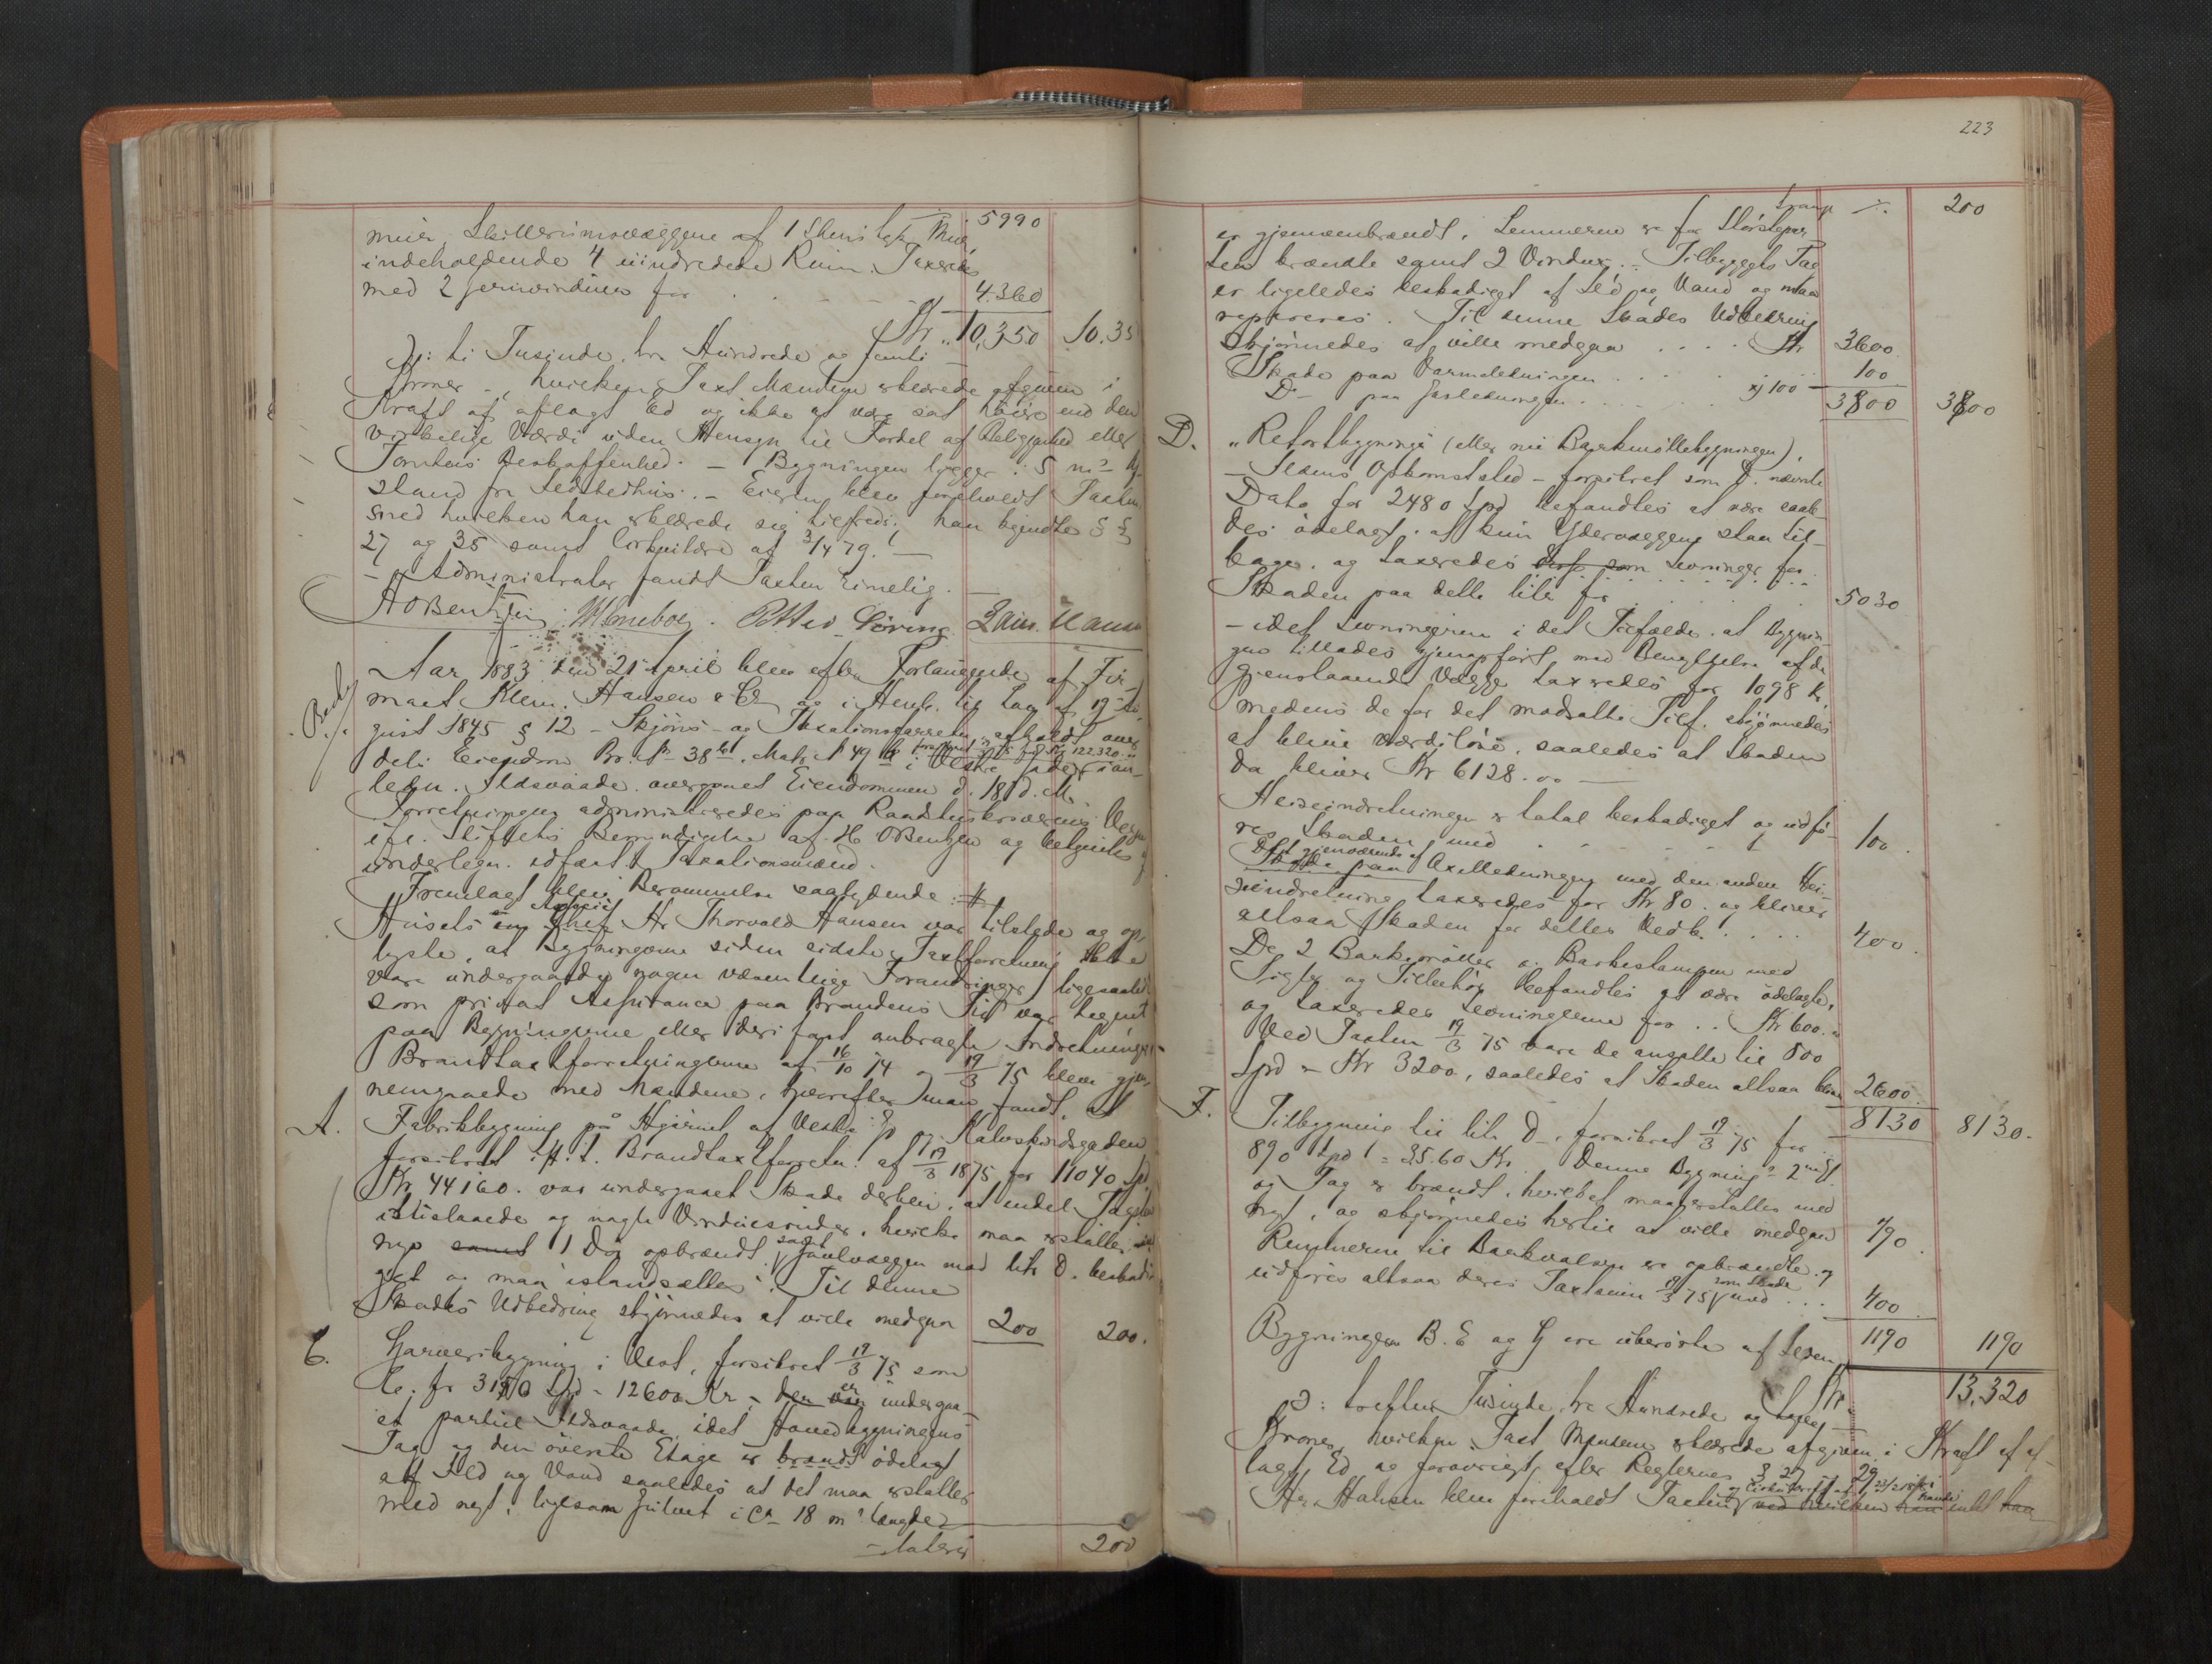 5990
muur, Skillerumsvæggene af 1 Stens tyk Muur,
indeholdende 4 uindredede Rum. Taxeredes
med 2 Jernvinduer for 4.360
Kr. 10,350 10.35
ɔ: ti Tusinde, tre Hundrede og femti
Kroner -, hvilken Taxt Mændene erklærede afgiven i
Kraft af aflagt Ed og ikke at være sat høiere end den
virkelige Værdi uden Hensyn til Fordel af Beliggenhed eller
Tomtens Beskaffenhed. - Bygningen ligger i 5 m? Af-
stand fra Ildstedhus. - Eieren blev foreholdt Taxten
med hvilken han erklærede sig tilfreds. han kjendte § §
27 og 35 samt Cirkulære af 3/4 79. -
- Administrator fandt Taxten rimelig. -
H OBentzen
Aar 1883 den 21 April blev efter Forlangende af Fir-
maet Klem. Hansen & Co og i Henh. til Lov af 19 Au-
gust 1845 § 12 - Skjøns- og Taxationsforretn. afholdt over
dets Eiendom Br. No 38 Matr. No 49 i Vestre Gade i an-
ledn. Ildsvaade overgaaet Eiendommen d. 18 d. M.
Forretningen administreredes paa Raadstuskriverens Vegne
efr. Stiftets Bemyndigelse af H. OBentzen og betjentes af
underlegn. edfæstet Taxationsmænd.
Fremlagt blev Berammelse saalydende: #
Husets Associé Hr Thorvald Hansen var tilstede og op-
lyste, at Bygningerne siden sidste Taxtforretning ikke
vare undergaaede nogen væsentlige Forandringer, ligesaalidt
som privat Assurance paa Brandens Tid var tegnet
paa Bygningerne eller deri fast anbragte Indretninger.
Brandtaxtforretningerne af 16/10 74 og 19/3 75 bleve gjen-
nemgaaede med Mændene, hvorefter man fandt, at
A. Fabrikbygning på Hjørnet af Vestre G. og Kalvskindsgaden
forsikret i h. t. Brandtaxtforretn. af 19/3 1875 for 11040 Spd.
Kr. 44160. var undergaaet Skade derhen, at endel Tagsten
istuslaaede og nogle Vinduesruder, hvilke maa erstattes
nye samt 1 Dør opbrændt, samt Gavlvæggen mod litr D. beskadi-
get og maa istandsættes. Til denne
Skades Udbedring skjønnedes at ville medgaa 200 200.
C. Garveribygning i Vest, forsikret 19/3 75 som
C. for 3150 Spd - 12600 Kr. - den er undergaa-
et partiel Ildsvaade, idet Hovedbygningens
Tag og den øverste Etage er brændt ødelagt
af Ild og Vand saaledes at det maa erstattes
med nyt, ligesom Gulvet i Ca 18 m? længde
- lateris 200
223
transp ./. 200
er gjennembrændt, Lemmerne er for Størsteparten
brændte samt 2 Vinduer. - Tilbyggets Tag
er ligeledes beskadiget af Ild og Vand og maa
repareres. Til denne Skades Udbedring
skjønnedes at ville medgaa . . . . Kr 3600
Skade paa Varmeledningen . . . . 100
Do - paa Gasledningen . . . . . 100
3800 3800
D. "Retortbygning" (eller nu Barkmøllebygningen),
- Ildens Opkomststed - forsikret som D. nævnte
Dato for 2480 Spd befandtes at være saale-
des ødelagt, at kun Ydervæggene staa til-
bage, og taxeredes Levninger for
Skaden paa dette litr for . . . . 5030
- idet Levningerne i det Tilfælde, at Bygnin-
gen tillades gjenopført med Benyttelse af de
gjenstaaende Vægge taxeredes for 1098 Kr
medens de for det modsatte Tilf. skjønnedes
at blive værdiløse, saaledes at Skaden
da bliver Kr 6128.00 -
Heiseindretningen er total beskadiget og udfø-
res Skaden med . . . . 100.
Det gjenværende af Axelledningen med den anden Hei-
seindretning taxeredes for Kr 80. og bliver
altsaa Skaden for dettes Vedk. . . . . 400.
De 2 Barkmøller og Barkestampen med
Sigter og Tilbehør befandtes at være ødelagte,
og taxeredes Levningerne for . . Kr 600.
Ved Taxten 19/3 75 vare de ansatte til 800
Spd = Kr 3200, saaledes at Skaden altsaa bliver 2600.
8130 8130.
F. Tilbygning til litr D., forsikret 19/3 75 for
890 Spd = 3560 Kr. Denne Bygnings 2den Etg.
og Tag er brændt, hvilket maa erstattes med
nyt, og skjønnedes hertil at ville medgaa 790.
Rummerne til Barkvalsen er opbrændte og
udføres altsaa deres Taxtsum 19/3 75 som Skade med . . . 400
1190 1190
Bygningerne B. E og G ere uberørte af Ilden
Kr 13,320
ɔ: tretten Tusinde, tre Hundrede og tyve
Kroner, hvilken Taxt Mændene erklærede afgiven i Kraft af af-
lagt Ed og forøvrigt efter Reglernes § 27 29
Hr. Hansen blev foreholdt Taxten